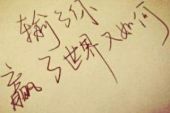 输了你
赢了世界又如何